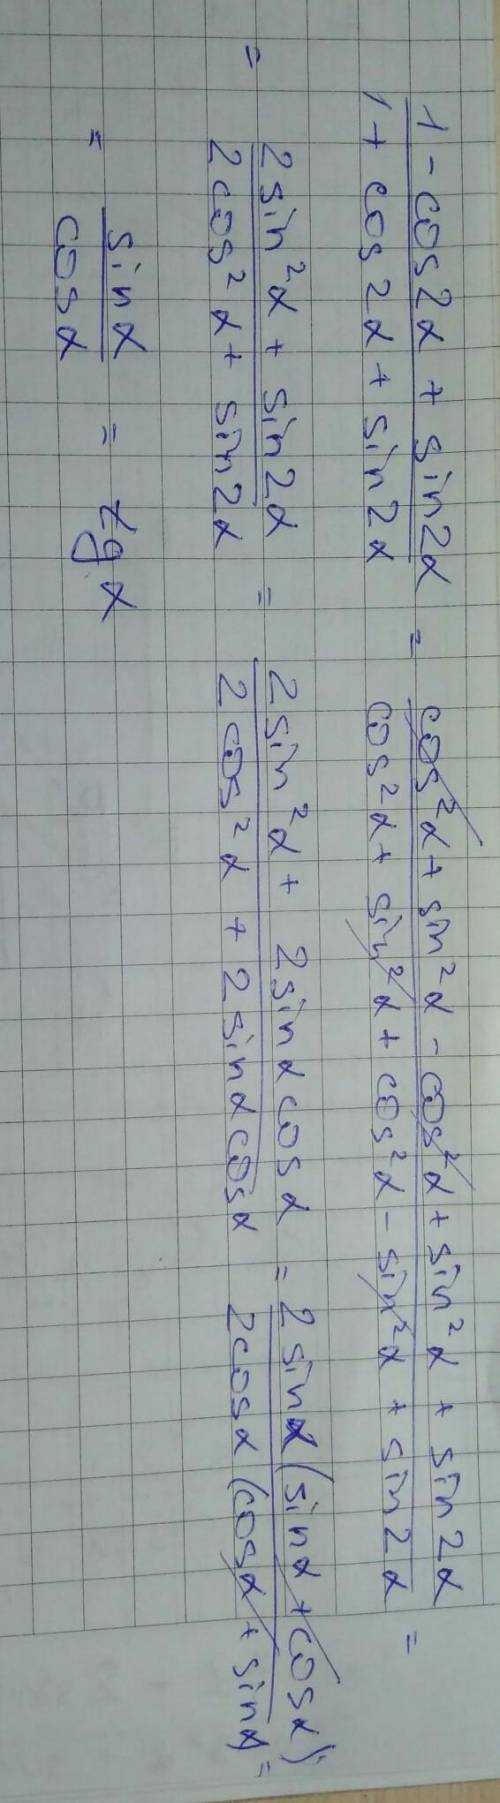 1 - cos2α + sin2α / 1 + cos2α + sin2α = cos²α + sin²α - cos²α + sin²α + sin2α / cos²α + sin²α + cos²α - sin²α + sin2α =
= 2sin²α + sin2α / 2cos²α + sin2α = 2sin²α + 2sinαcosα / 2cos²α + 2sinαcosα = 2sinα(sinα + cosα) / 2cosα(cosα + sinα) =
= sinα / cosα = tgα